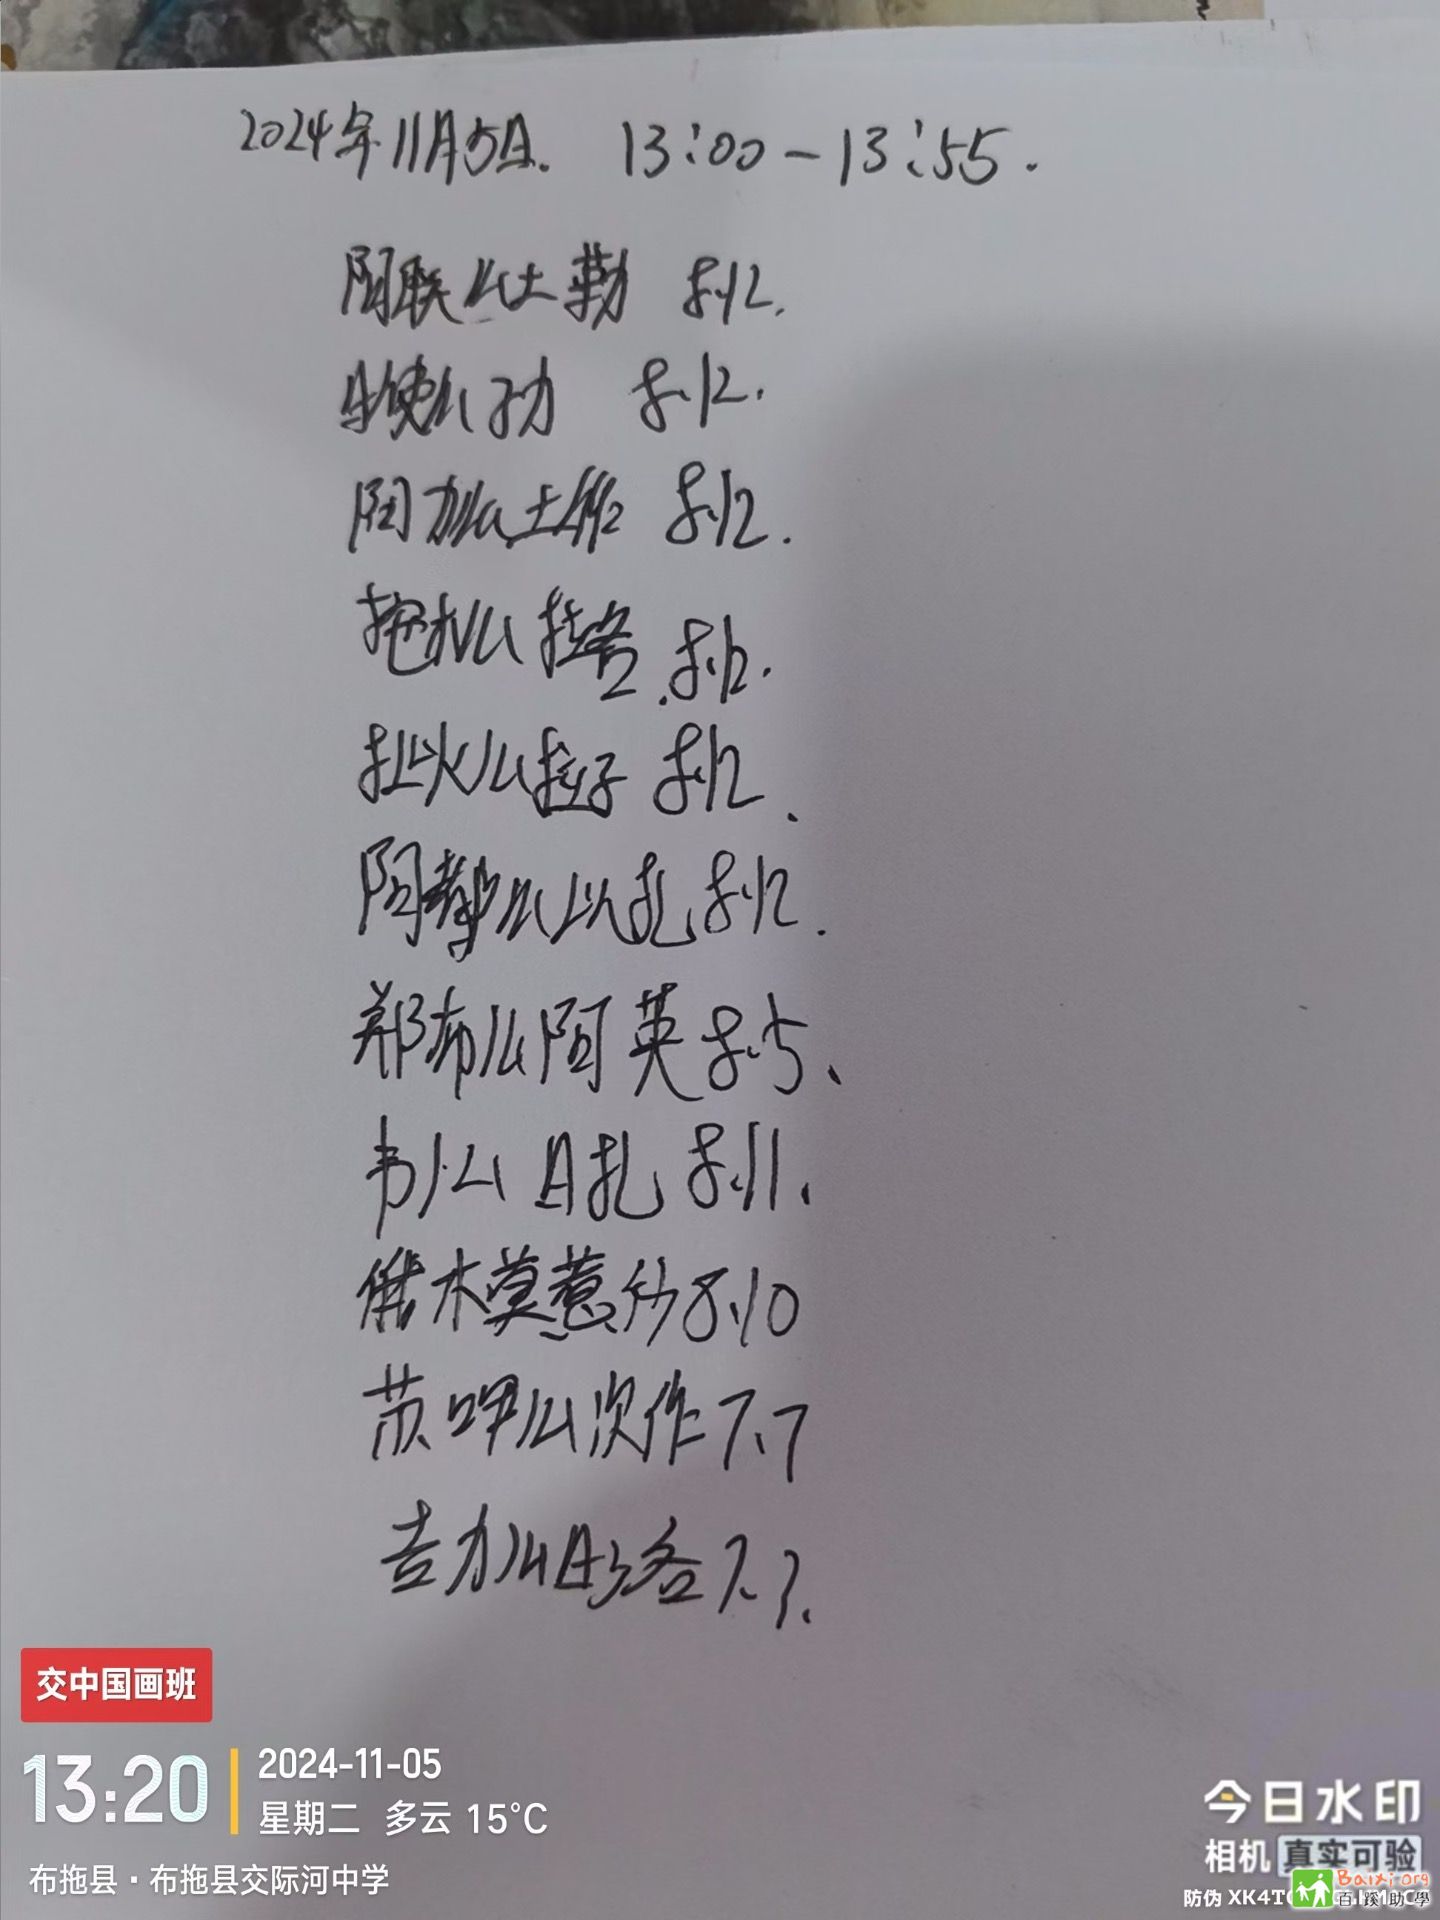 2024年11月5日. 13:00-13:55.
阿联么土勒 8.12.
么子力 8.12.
阿加么土作 8.12.
么拉 8.12.
扯火么拉子 8.12.
阿都么以扎 8.12.
郑布么阿英 8.5、
韦几么日扎 8.11、
俄木莫惹 8.10
苏呷么次作 7.7
吉力么日洛 7.7.
交中国画班
13:20
2024-11-05
星期二 多云 15°C
布拖县·布拖县交际河中学
今日水印
相机 真实可验
防伪
Baixi.org
百蹊助學